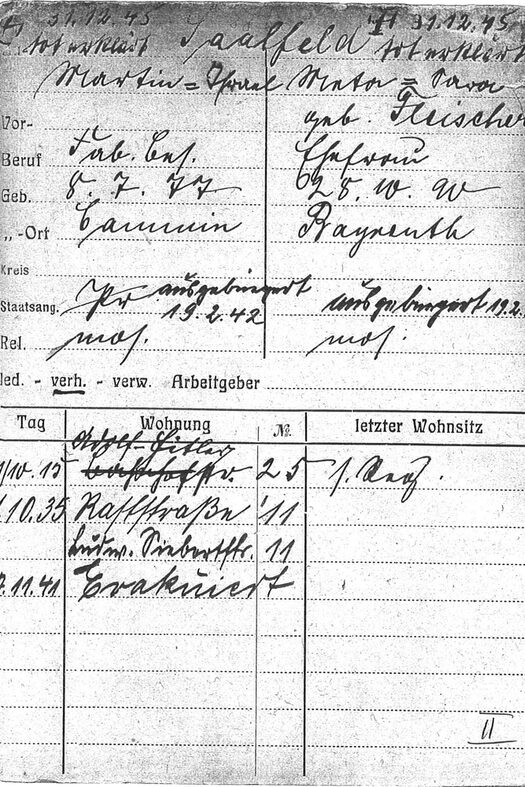 † 31.12.45 † 31.12.45
tot erklärt Saalfeld tot erklärt
Martin = Israel Meta = Sara
Vor- geb. Fleischer
Beruf Fab. bes. Ehefrau
Geb. 8. 7. 77 28. 10. 90
„-Ort Cammin Bayreuth
Kreis
Staatsang. Pr ausgebürgert 19.2.42 ausgebürgert 19.2.
Rel. mos. mos.
led. - verh. - verw. Arbeitgeber
Tag Wohnung № letzter Wohnsitz
Adolf-Hitler
/10.15 str. 25 s.
/10.35 Raffstraße 11
Ludw. Siebertstr. 11
7.11.41 Evakuiert
II